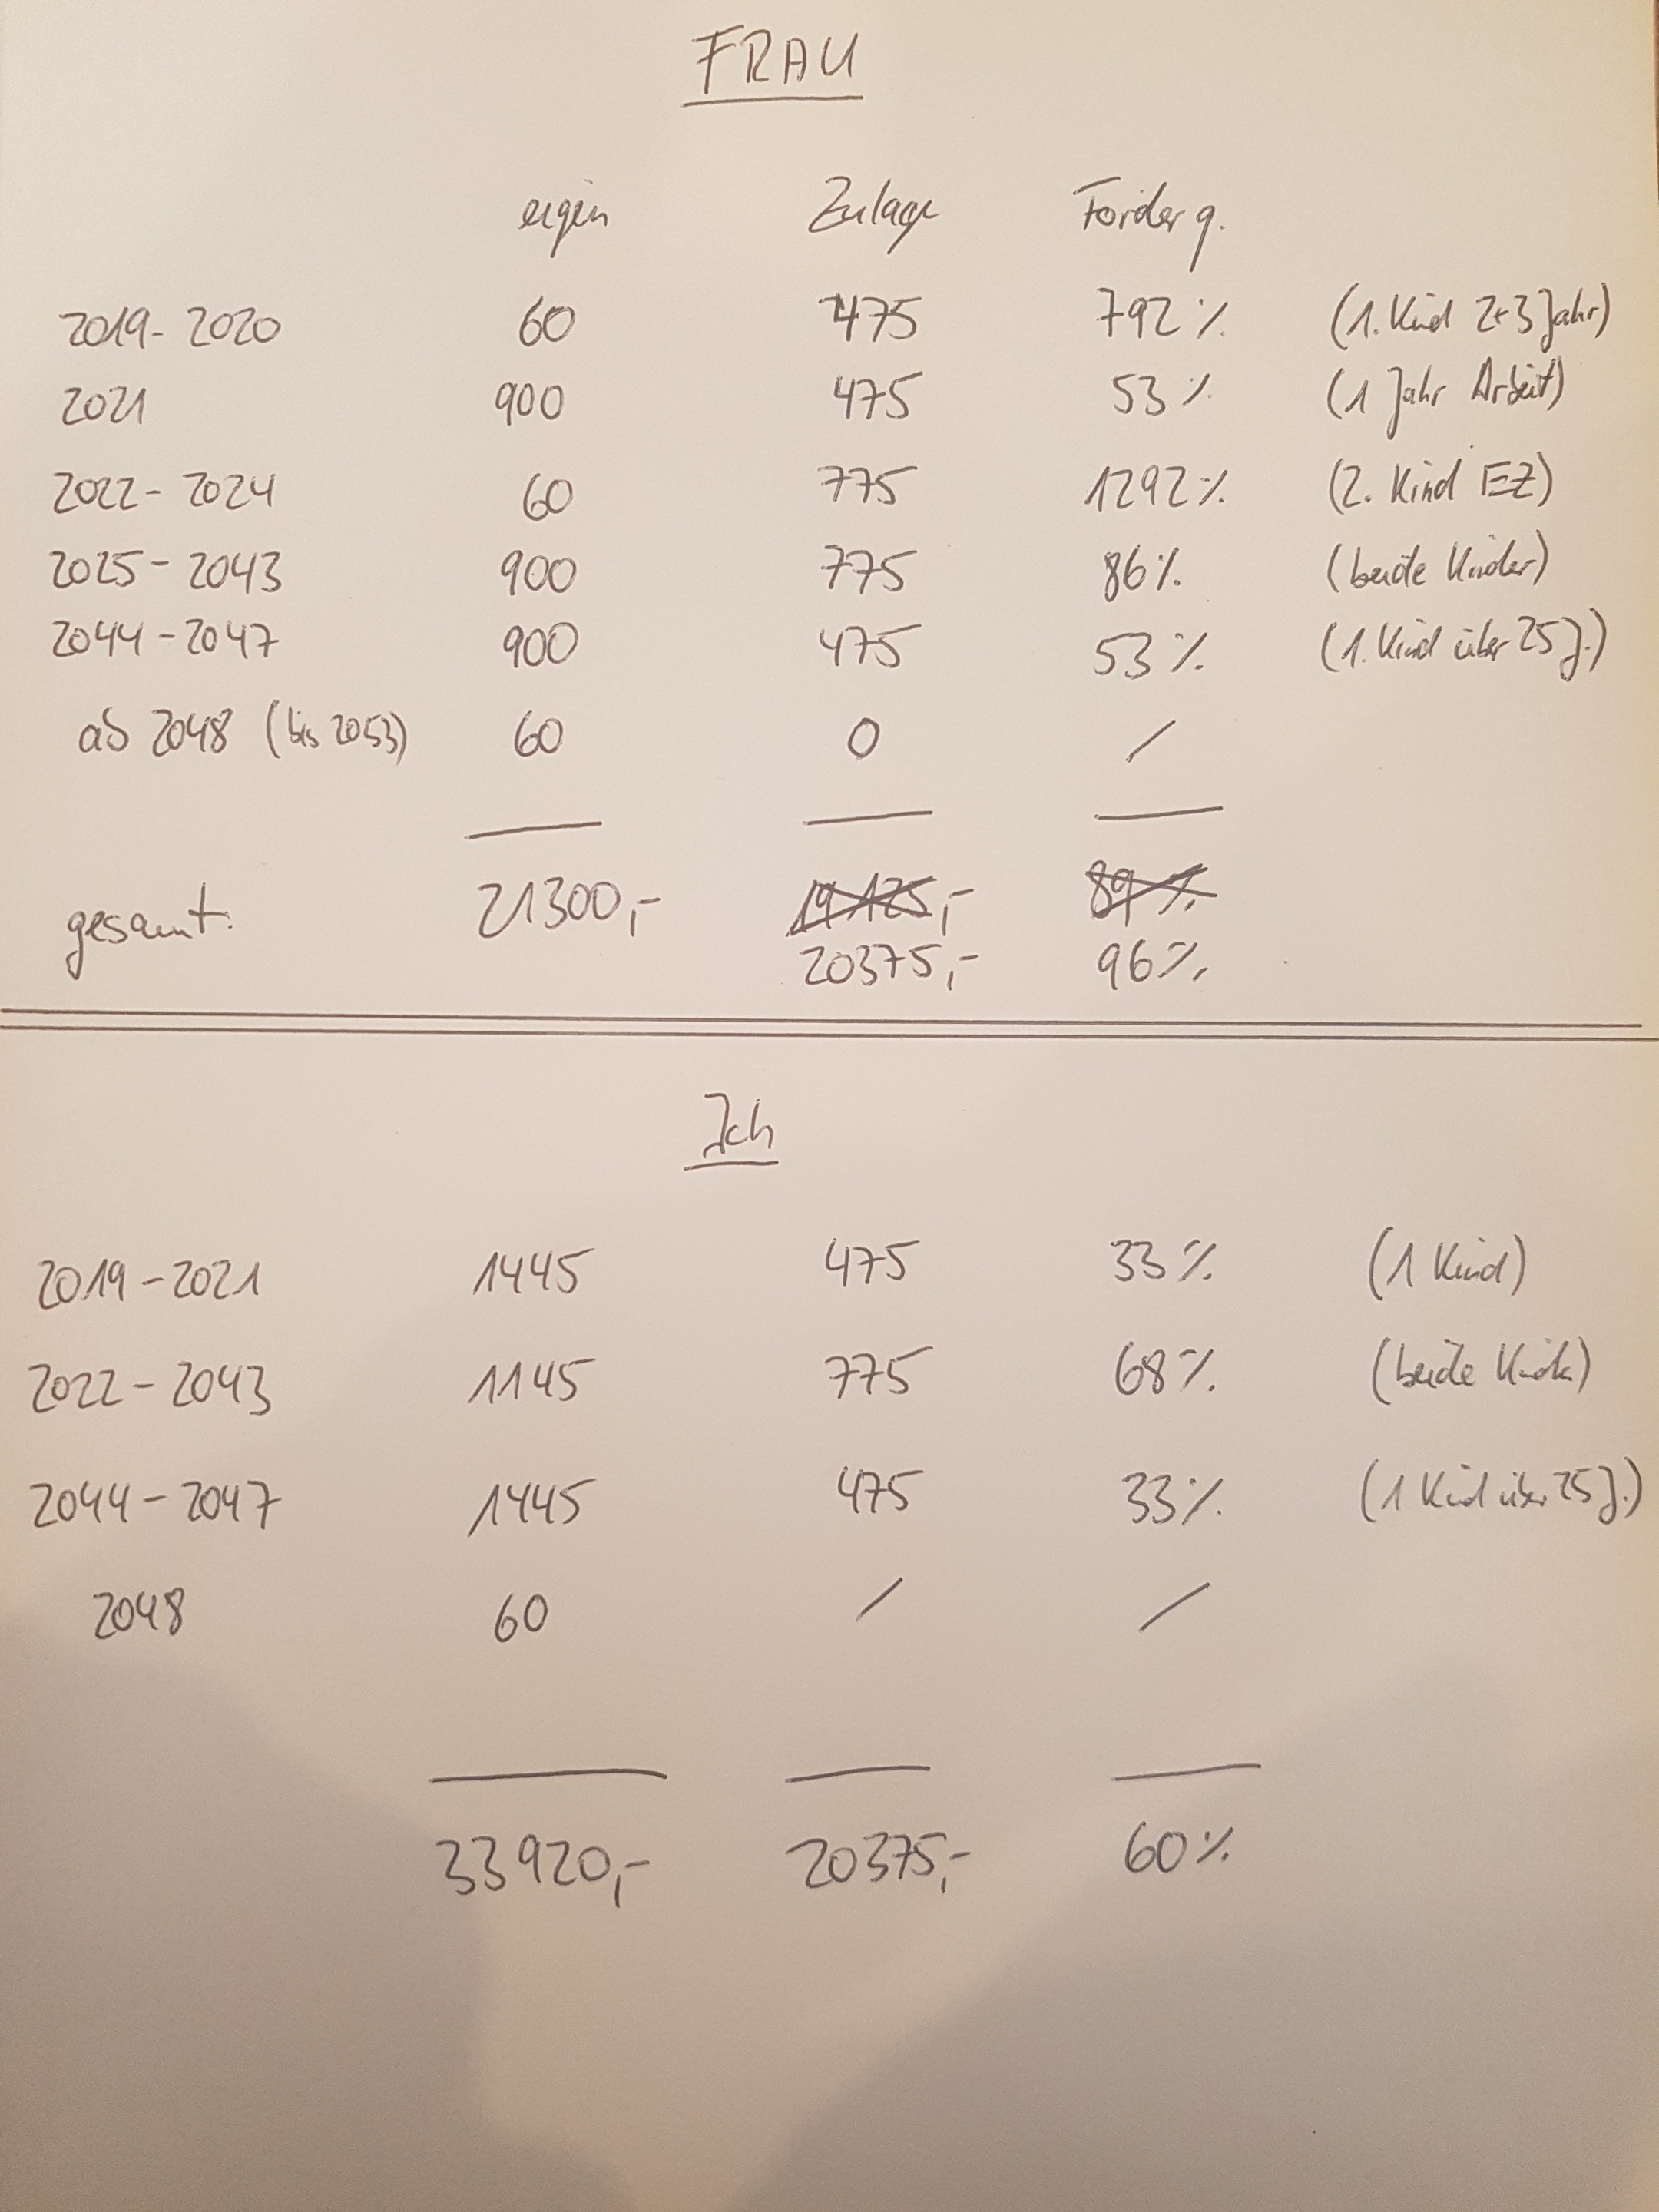 FRAU
eigen Zulage Förderq.
2019-2020 60 475 792% (1. Kind 2+3 Jahr)
2021 900 475 53% (1 Jahr Arbeit)
2022-2024 60 775 1292% (2. Kind EZ)
2025-2043 900 775 86% (beide Kinder)
2044-2047 900 475 53% (1. Kind über 25 J.)
ab 2048 (bis 2053) 60 0 /
gesamt: 21300,- 19125,- 89%
20375,- 96%
Ich
2019-2021 1445 475 33% (1 Kind)
2022-2043 1145 775 68% (beide Kinder)
2044-2047 1445 475 33% (1 Kind über 25 J.)
2048 60 / /
33920,- 20375,- 60%